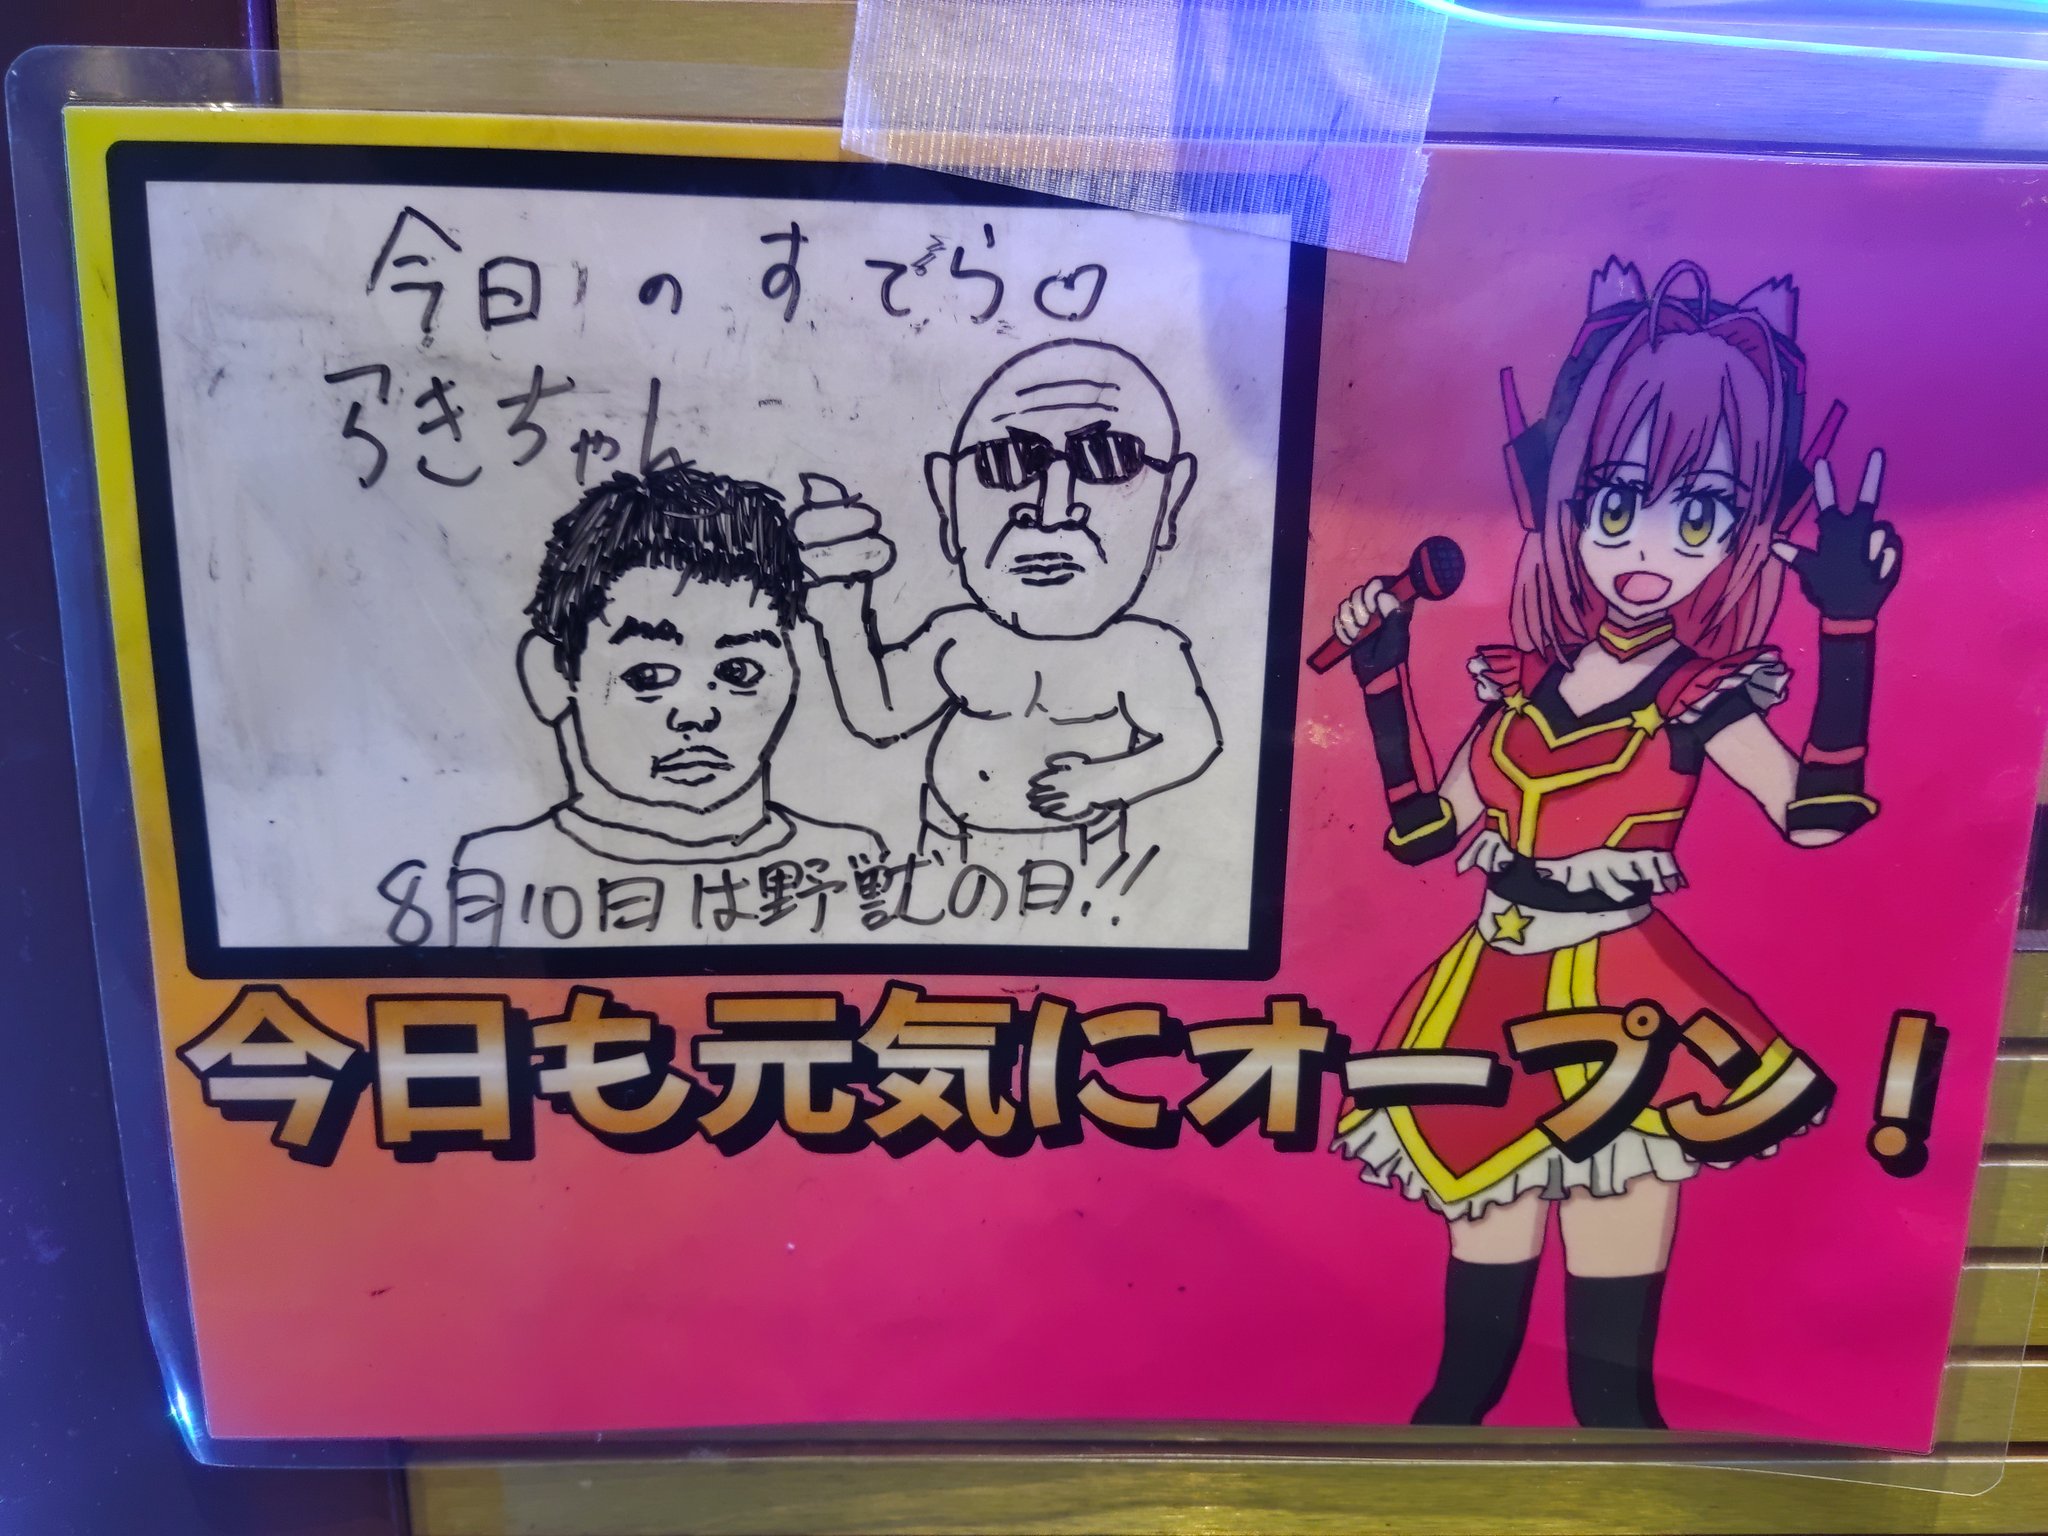 今日のすでら♡
らきちゃん
8月10日は野獣の日!!
今日も元気にオープン!